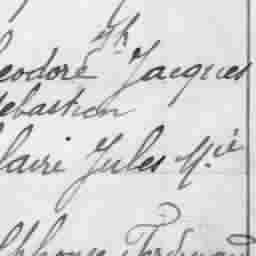 Th
eodore Jacques
ebastien
laire Jules Mie
lphonse Ferdinand